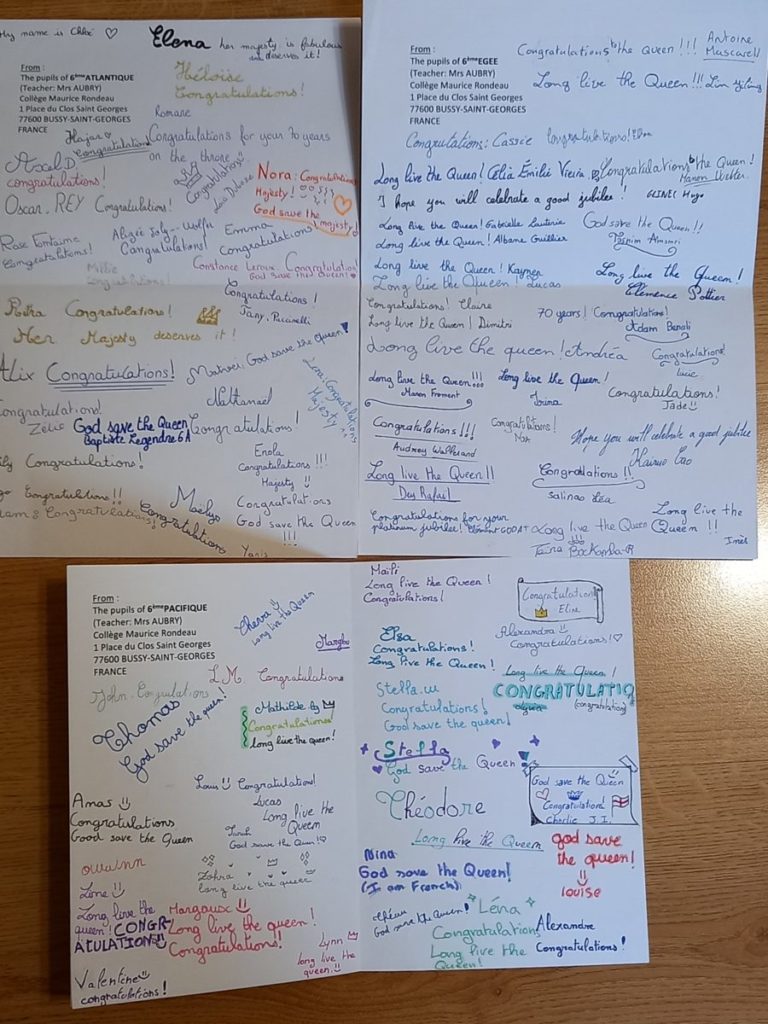 My name is Chloé ♡
Elena her majesty is fabulous
deserves it!
From :
The pupils of 6èmeATLANTIQUE
(Teacher: Mrs AUBRY)
Collège Maurice Rondeau
1 Place du Clos Saint Georges
77600 BUSSY-SAINT-GEORGES
FRANCE
Héloïse
Congratulations!
Romane
Congratulations for your 70 years
on the throne
Hajar
Congratulations
Axel D
congratulations!
Congratulations!
Nora: Congratulations
Majesty!
God save the majesty!
Oscar. REY Congratulations!
Rose Fontaine
Congratulations!
Congratulations!
Emma
Congratulations
Millie
Congratulations!
Constance Leroux. Congratulations!
God save the Queen!
Congratulations!
Congratulations!
Her Majesty deserves it!
Alix Congratulations!
God save the queen
Congratulations
Majesty
Nathanael
Congratulations!
Congratulations!
Zélie
God save the Queen
Baptiste Legendre 6A
Enola
Congratulations !!!
Majesty
Congratulations!
Congratulations!!
Congratulations!
Maelys
Congratulations
Congratulations
God save the Queen
!!!
Yanis
From :
The pupils of 6èmeEGEE
(Teacher: Mrs AUBRY)
Collège Maurice Rondeau
1 Place du Clos Saint Georges
77600 BUSSY-SAINT-GEORGES
FRANCE
Congratulations to the Queen !!! Antoine
Long live the Queen !!!
Congrutations: Cassie Congratulations!
Long live the Queen! Célia Émilie Vieira
Congratulations to the Queen!
Manon
I hope you will celebrate a good jubilee! Hugo
Long live the Queen! Gabrielle
God save the Queen!!
Long live the Queen! Albane Guillier
Long live the Queen! Kaynen
Long live the Queen! Lucas
Long live the Queen!
Clémence Pottier
Congratulations! Claire
70 years! Congratulations!
Adam Benali
Long live the Queen! Dimitri
Long live the queen! Andréa
Congratulations!
Lucie
Long live the Queen!!!
Manon Froment
Long live the Queen!
Congratulations!
Jade
Congratulations!!!
Audrey
Congratulations!
Hope you will celebrate a good jubilee
Long live the Queen!!
Congratulations!!
Congratulations for your
platinum jubilee!
Long live the Queen
Long live the
Queen !!
Inès
From :
The pupils of 6èmePACIFIQUE
(Teacher: Mrs AUBRY)
Collège Maurice Rondeau
1 Place du Clos Saint Georges
77600 BUSSY-SAINT-GEORGES
FRANCE
long live the Queen
L.M. Congratulations
John. Congrulations
Thomas
God save the queen!
Mathilde
Congratulations
long live the queen!
Louis Congratulations!
Lucas
Long live the
Queen
Anas
Congratulations
Good save the Queen
God save the Queen!
Zohra
long live the queen
Long live the
queen! CONGR-
ATULATION
Margaux
Long live the queen!
Congratulations!
Lynn
long live the
queen.
Valentine
congratulations!
Long live the Queen!
Congratulations!
Congratulations!
Elise
Elsa
Congratulations!
Long live the Queen!
Alexandra
Congratulations!♡
Long live the Queen!
CONGRATULATIO
(congratulation)
Stella.w
Congratulations!
God save the queen!
Stella
God save the Queen
God save the Queen
Congratulations!
Charlie J.I.!
Théodore
Long live the Queen
god save
the queen!
louise
Nina
God save the Queen!
(I am French)
God save the Queen!
Léna
Congratulations
Long live the
Queen!
Alexandre
Congratulations!